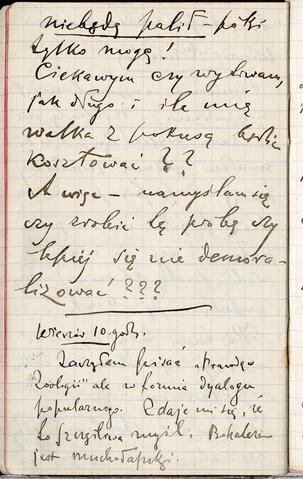 niebędę palił - póki
tylko mogę!
Ciekawym czy wytrwam,
jak długo i ile mię
walka z pokusą będzie
kosztować ??
A więc - namyślam się
czy zrobić tę próbę czy
lepiej się nie demora-
lizować ???
Wieczór 10 godz.
Zacząłem pisać "Prawdę
Zoologji" ale w formie dyalogu
popularnego. Zdaje mi się, że
to szczęśliwa myśl. Bohaterem
jest